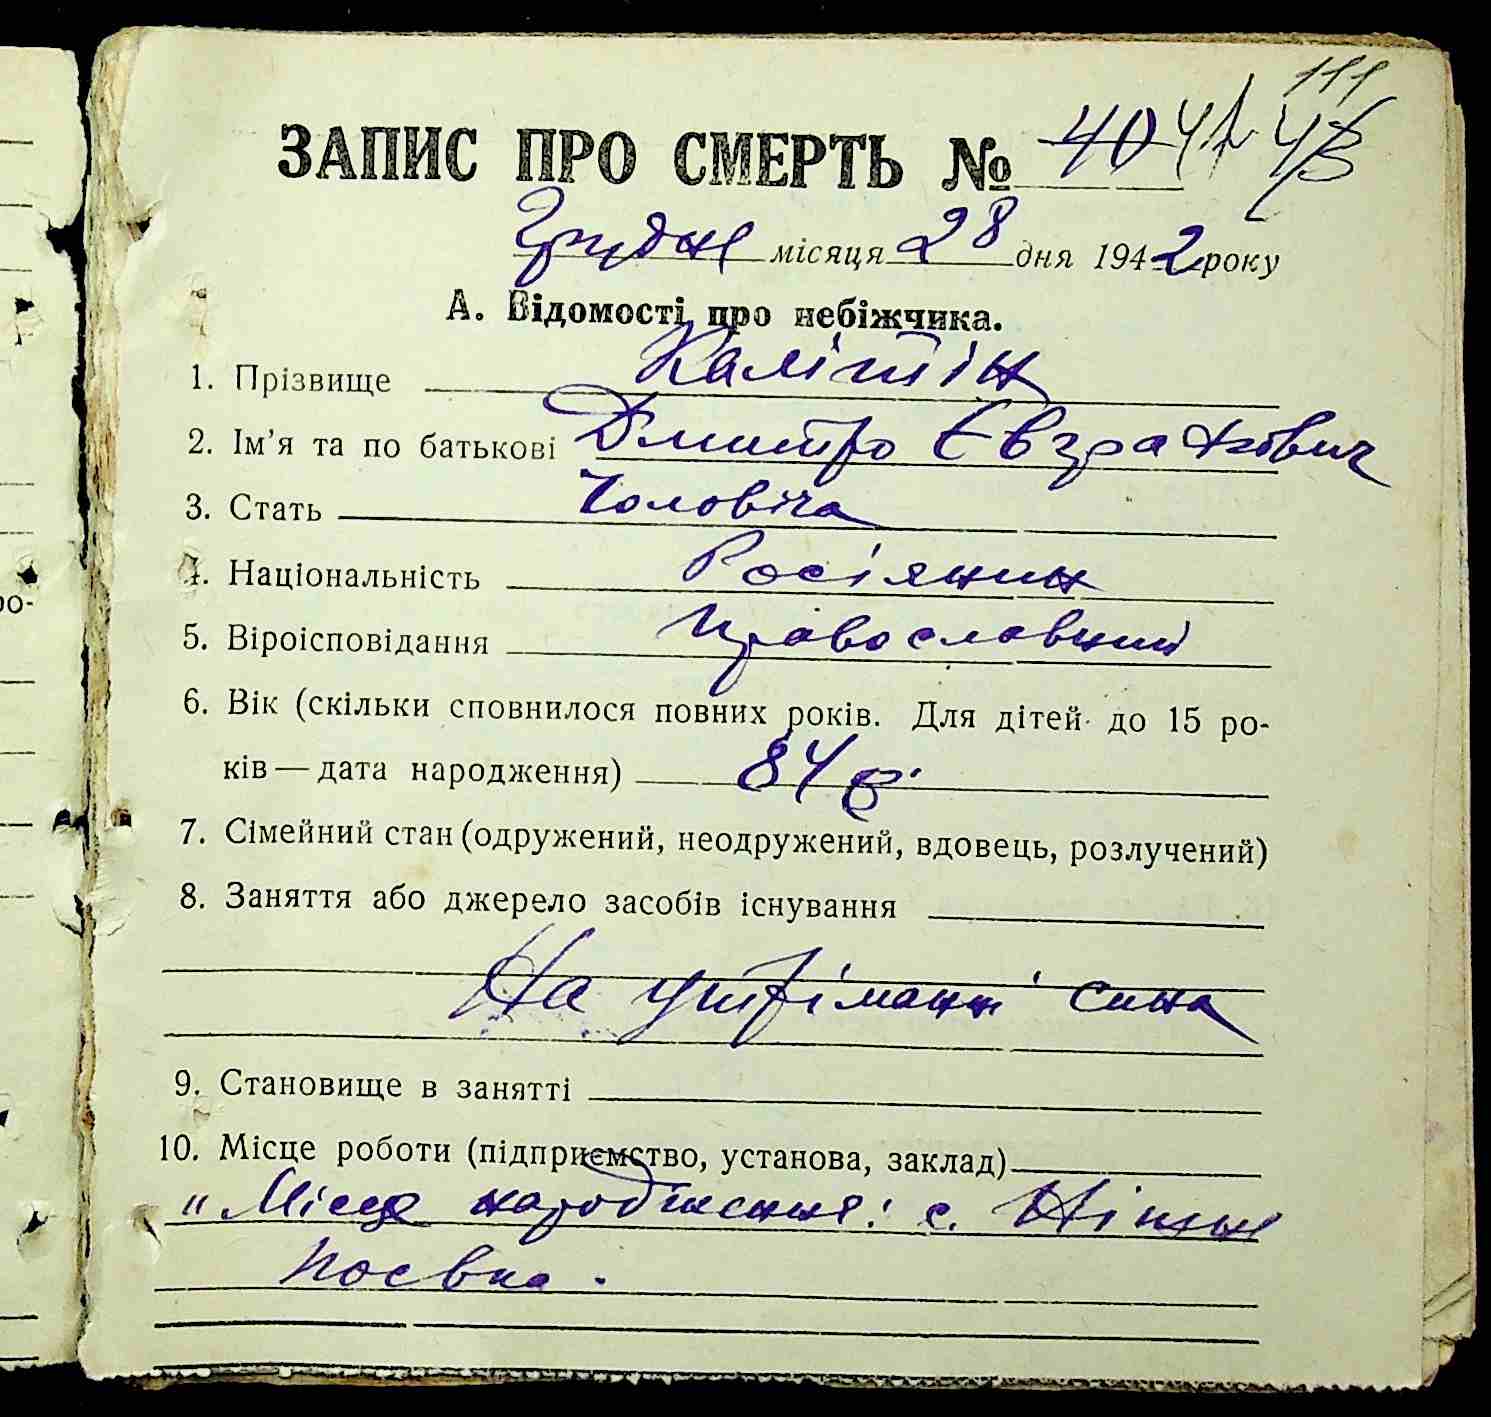 111
ЗАПИС ПРО СМЕРТЬ № 40 41 43
Грудня місяця 28 дня 1942 року
А. Відомості про небіжчика.
1. Прізвище Калітін
2. Ім'я та по батькові Дмитро Євграхович
3. Стать Чоловіча
4. Національність Росіянин
5. Віроісповідання Православний
6. Вік (скільки сповнилося повних років. Для дітей до 15 ро-
ро-
ків — дата народження) 84
7. Сімейний стан (одружений, неодружений, вдовець, розлучений)
8. Заняття або джерело засобів існування
На утріманні сина
9. Становище в занятті
10. Місце роботи (підприємство, установа, заклад)
" Місце народження: с.